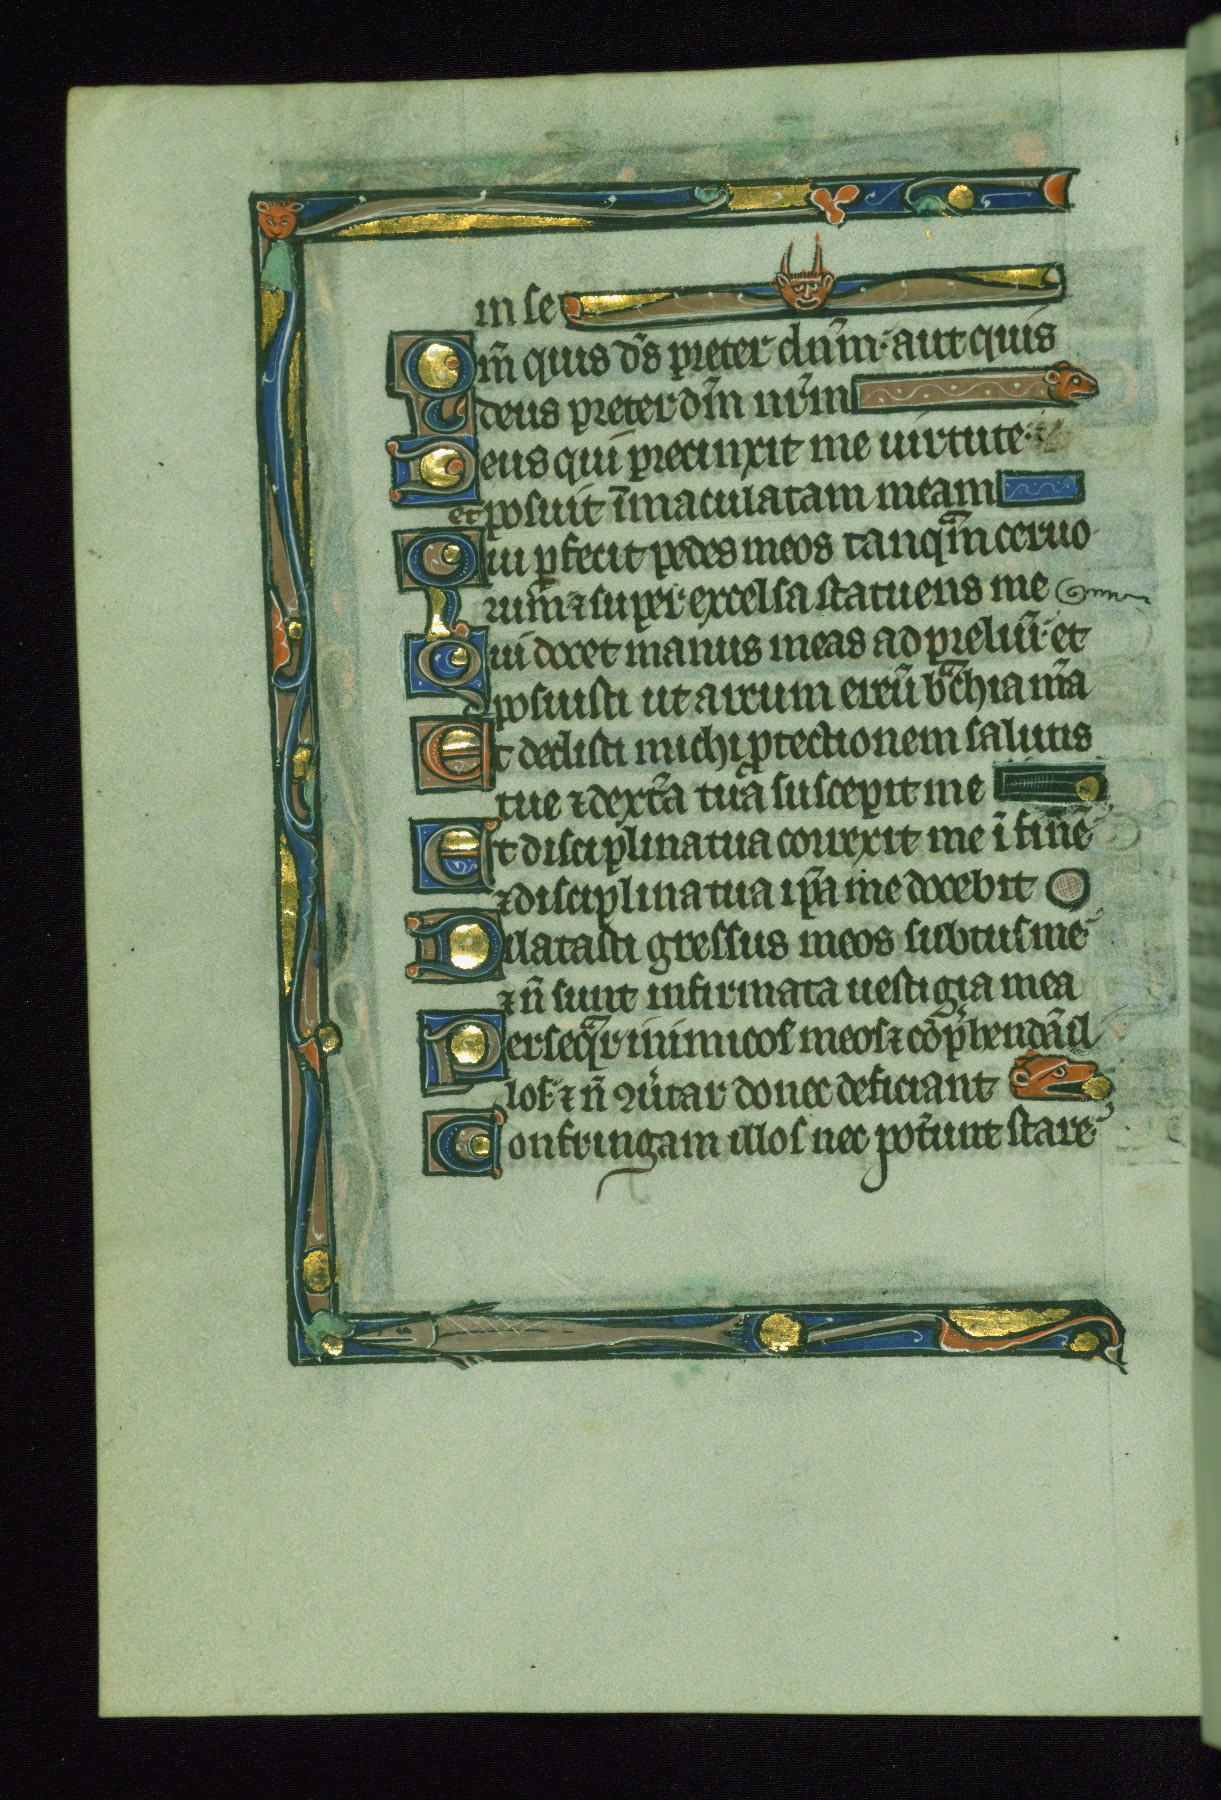 in se
Qm̄ quis ds̄ preter dn̄m· aut quis
deus preter dm̄ nr̄m
Deus qui precinxit me uirtute·
et posuit īmaculatam meam
Qui ꝑfecit pedes meos tanqᵃm ceruo
rum ⁊ super excelsa statuens me
Qui docet manus meas ad preliū· et
posuisti ut arcum ereū bᵃchia m̄a
Et dedisti michi ꝓtectionem salutis
tue ⁊ dext̄a tua suscepit me
Et disciplina tua correxit me ī finē
⁊ disciplina tua ip̄a me docebit
Dilatasti gressus meos subtus me
⁊ n̄ sunt infirmata uestigia mea
Persequᵃr inimicos meos ⁊ cōp̄hendā il
los· ⁊ n̄ ꝯūtar donec deficiant
Confringam illos nec pot̄unt stare